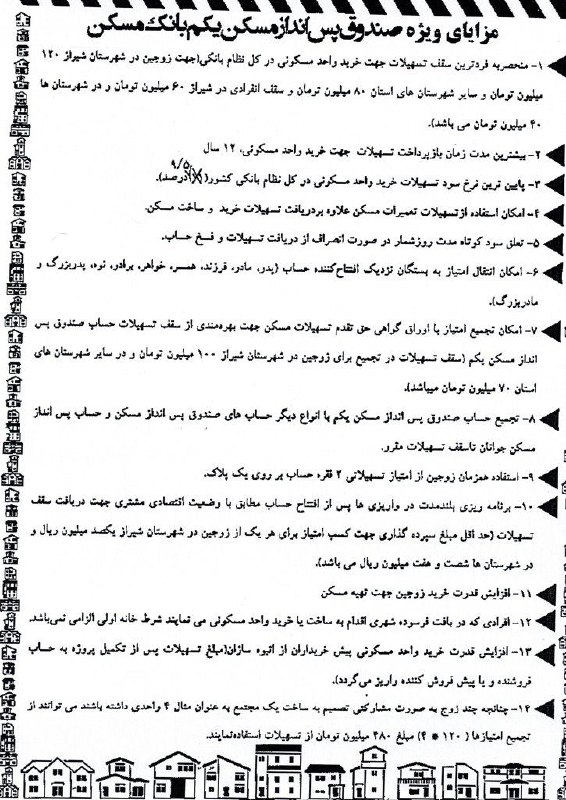 مزایای ویژه صندوق پس انداز مسکن یکم بانک مسکن
۱- منحصربه فردترین سقف تسهیلات جهت خرید واحد مسکونی در کل نظام بانکی(جهت زوجین در شهرستان شیراز ۱۲۰
میلیون تومان و سایر شهرستان های استان ۸۰ میلیون تومان و سقف انفرادی در شیراز ۶۰ میلیون تومان و در شهرستان ها
۴۰ میلیون تومان می باشد).
۲- بیشترین مدت زمان بازپرداخت تسهیلات جهت خرید واحد مسکونی، ۱۲ سال
۹/۵
۳- پایین ترین نرخ سود تسهیلات خرید واحد مسکونی در کل نظام بانکی کشور( درصد).
۴- امکان استفاده ازتسهیلات تعمیرات مسکن علاوه بردریافت تسهیلات خرید و ساخت مسکن.
۵- تعلق سود کوتاه مدت روزشمار در صورت انصراف از دریافت تسهیلات و فسخ حساب.
۶- امکان انتقال امتیاز به بستگان نزدیک افتتاح‌کننده حساب (پدر، مادر، فرزند، همسر، خواهر، برادر، نوه، پدربزرگ و
مادربزرگ).
۷- امکان تجمیع امتیاز با اوراق گواهی حق تقدم تسهیلات مسکن جهت بهره‌مندی از سقف تسهیلات حساب صندوق پس
انداز مسکن یکم (سقف تسهیلات در تجمیع برای زوجین در شهرستان شیراز ۱۰۰ میلیون تومان و در سایر شهرستان های
استان ۷۰ میلیون تومان میباشد).
۸- تجمیع حساب صندوق پس انداز مسکن یکم با انواع دیگر حساب های صندوق پس انداز مسکن و حساب پس انداز
مسکن جوانان تاسقف تسهیلات مقرر.
۹- استفاده همزمان زوجین از امتیاز تسهیلاتی ۲ فقره حساب بر روی یک پلاک.
۱۰- برنامه ریزی بلندمدت در واریزی ها پس از افتتاح حساب مطابق با وضعیت اقتصادی مشتری جهت دریافت سقف
تسهیلات (حد اقل مبلغ سپرده گذاری جهت کسب امتیاز برای هر یک از زوجین در شهرستان شیراز یکصد میلیون ریال و
در شهرستان ها شصت و هفت میلیون ریال می باشد).
۱۱- افزایش قدرت خرید زوجین جهت تهیه مسکن
۱۲- افرادی که در بافت فرسوده شهری اقدام به ساخت یا خرید واحد مسکونی می نمایند شرط خانه اولی الزامی نمی‌باشد.
۱۳- افزایش قدرت خرید واحد مسکونی پیش خریداران از انبوه سازان(مبلغ تسهیلات پس از تکمیل پروژه به حساب
فروشنده و یا پیش فروش کننده واریز می‌گردد).
۱۴- چنانچه چند زوج به صورت مشارکتی تصمیم به ساخت یک مجتمع به عنوان مثال ۴ واحدی داشته باشند می توانند از
تجمیع امتیازها ( ۱۲۰ * ۴) مبلغ ۴۸۰ میلیون تومان از تسهیلات استفاده‌نمایند.